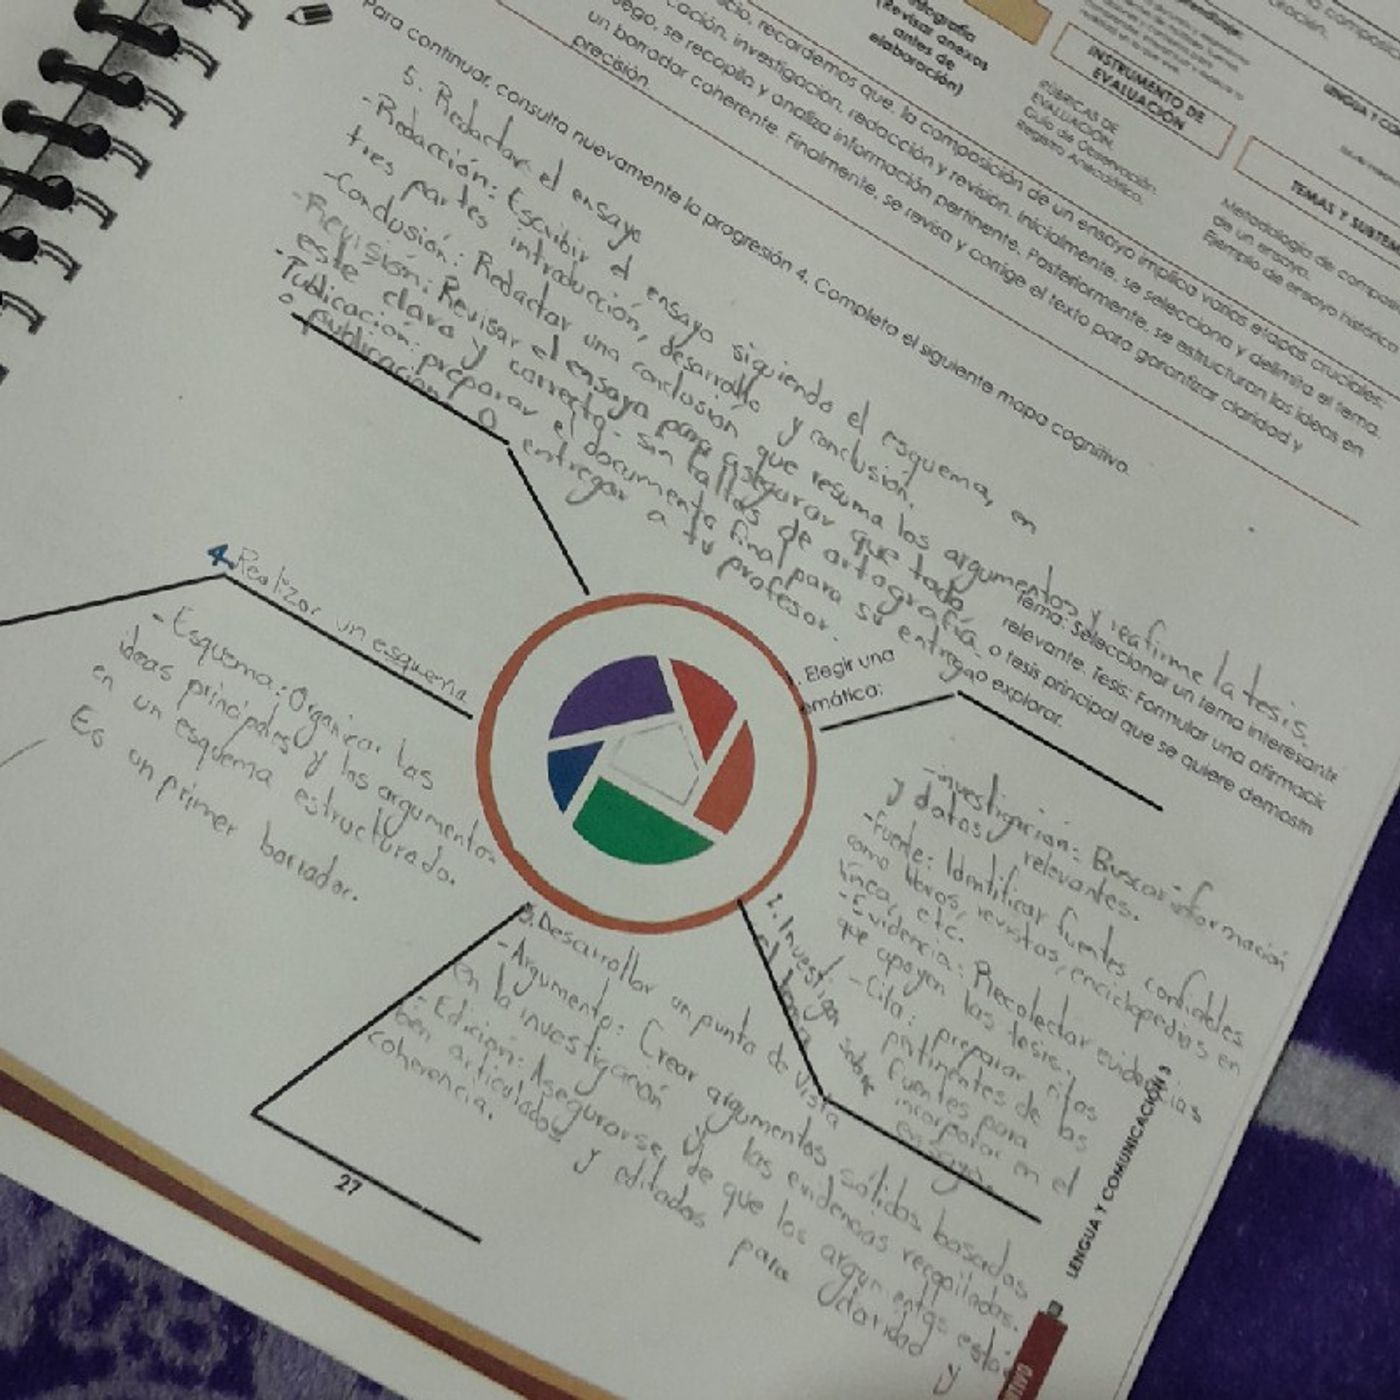 INSTRUMENTO DE
EVALUACIÓN
RÚBRICAS DE
EVALUACIÓN.
Guía de observación.
Registro Anecdótico.
(Revisar anexos
antes de
elaboración)
TEMAS Y SUBTE
Metodología de
de un ensayo.
Ejemplo de ensayo histórico
recordemos que, la composición de un ensayo implica varias etapas cruciales:
investigación, redacción y revisión. Inicialmente, se selecciona y delimita el tema.
se recopila y analiza información pertinente. Posteriormente, se estructuran las ideas en
un borrador coherente. Finalmente, se revisa y corrige el texto para garantizar claridad y
precisión.
Para continuar, consulta nuevamente la progresión 4. Completa el siguiente mapa cognitivo.
5. Redactar el ensayo
-Redacción: Escribir el ensayo siguiendo el esquema, en
tres partes introducción, desarrollo y conclusión.
-Conclusión: Redactar una conclusión que resuma los argumentos y reafirme la tesis.
-Revisión: Revisar el ensayo para asegurar que todo
este claro y correcto. sin fallas de ortografía.
-Publicación: preparar el documento final para su entrega o
publicación o entregar a tu profesor.
1. Elegir una
emática:
Tema: Seleccionar un tema interesante
relevante. Tesis: Formular una afirmació
o tesis principal que se quiere demostr
o explorar.
4 Realizar un esquema
-Esquema: Organizar las
ideas principales y los argumentos
en un esquema estructurado.
Es un primer borrador.
2. Investigar sobre
el tema
-investigación: Buscar información
y datos relevantes.
-Fuente: Identificar fuentes confiables
como libros, revistas, enciclopedias en
línea, etc.
-Evidencia: Recolectar evidencias
que apoyen las tesis.
-Cita: preparar citas
pertinentes de las
fuentes para
incorporar en el
ensayo.
3. Desarrollar un punto de vista
-Argumento: Crear argumentos sólidos basados
en la investigación y las evidencias recopiladas.
-Edición: Asegurarse de que los argumentos están
bien articulados y editados para claridad y
coherencia.
27
LENGUA Y COMUNICACIÓN 3